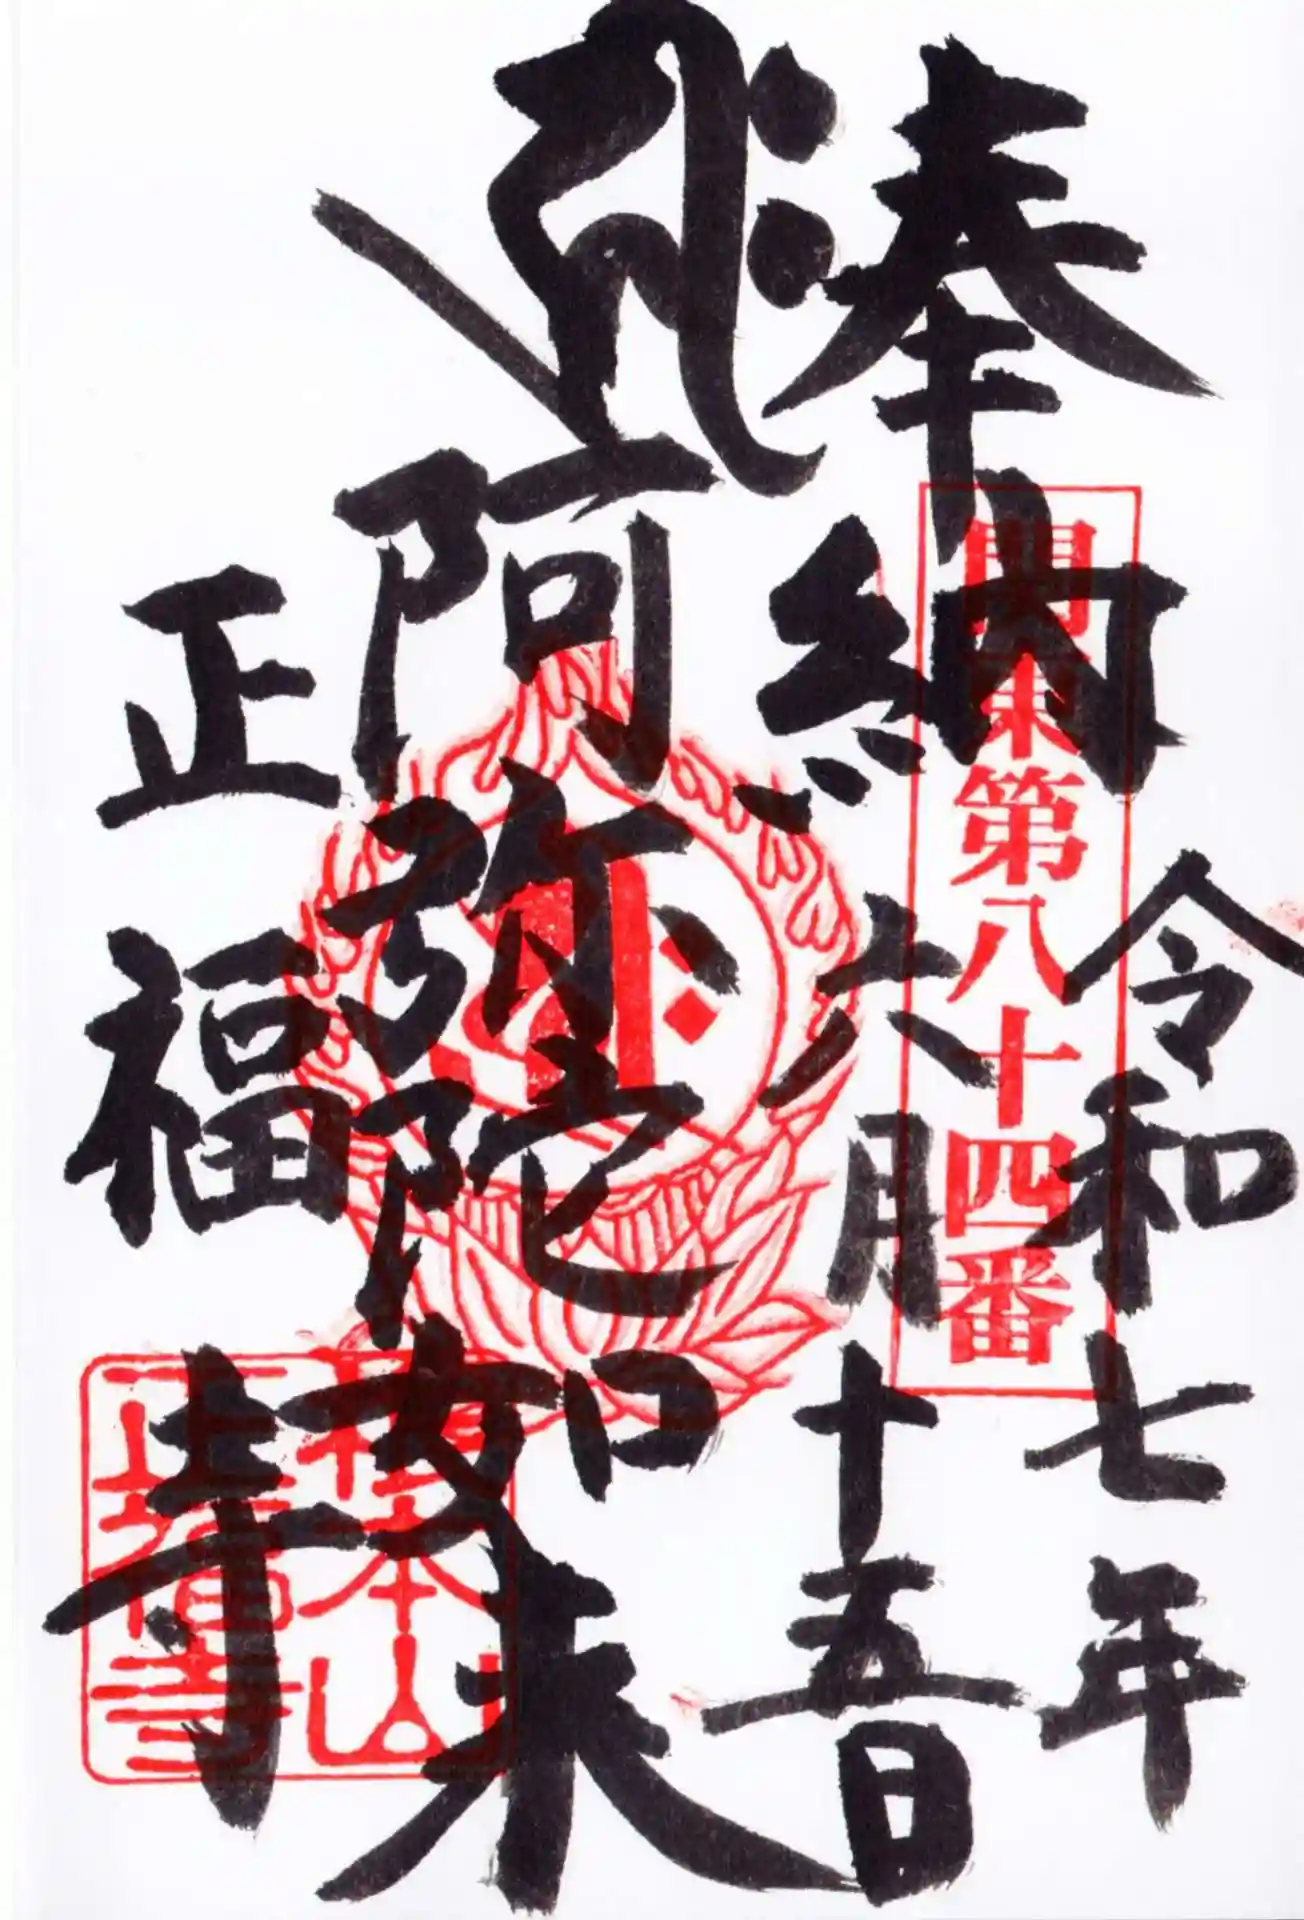 奉納
令和七年
六月十五日
関東第八十四番
キリーク
阿弥陀如来
正福寺
本山
正福寺